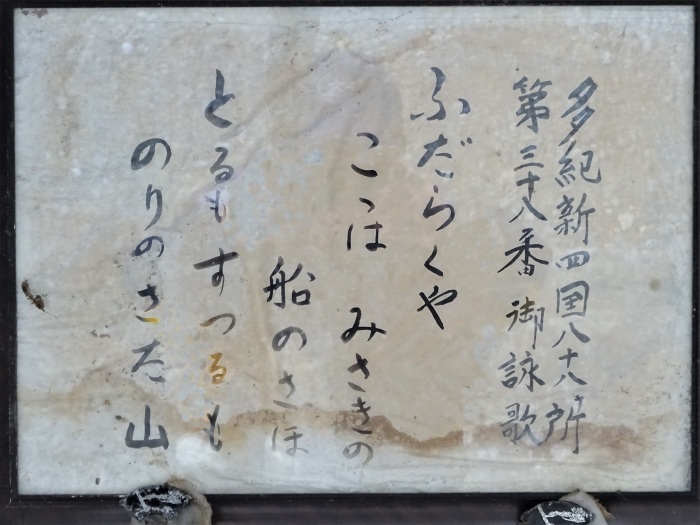 多紀新四国八十八ヶ所
第三十八番御詠歌
ふだらくや
ここは みさきの
船のさほ
とるもすつるも
のりのさた山